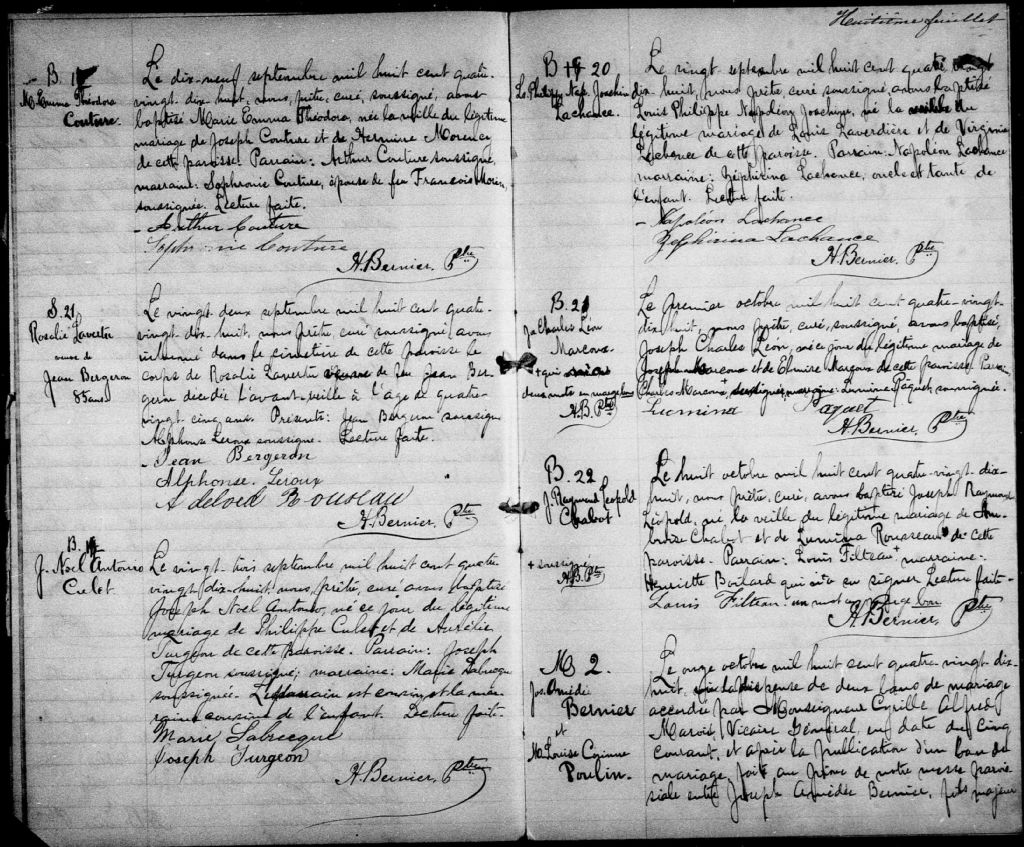 B.
M. Emma Théodora
Couture.
Le dix-neuf septembre mil huit cent quatre-
vingt-dix-huit, nous, prêtre, curé, soussigné, avons
baptisé Marie Emma Théodora, née la veille du légitime
mariage de Joseph Couture et de Hermine Morency
de cette paroisse. Parrain: Arthur Couture soussigné,
marraine: Sophronie Couture, épouse de feu François
soussignée. Lecture faite.
- Arthur Couture
Sophronie Couture
H. Bernier, Ptre
S. 21
Rosalie Lavertu
veuve de
Jean Bergeron
85 ans.
Le vingt-deux septembre mil huit cent quatre-
vingt-dix-huit, nous prêtre curé soussigné, avons
inhumé dans le cimetière de cette paroisse le
corps de Rosalie Lavertu veuve de feu Jean Ber-
geron décédée l'avant-veille à l'âge de quatre-
vingt-cinq ans. Présents: Jean Bergeron soussigné
Alphonse Leroux soussigné. Lecture faite.
- Jean Bergeron
Alphonse Leroux
Adelord Rousseau
H. Bernier, Ptre
B.
J. Noël Antonio
Culet.
Le vingt-trois septembre mil huit cent quatre
vingt-dix-huit, nous, prêtre, curé avons baptisé
Joseph Noël Antonio, né ce jour du légitime
mariage de Philippe Culet et de Aurélie
Turgeon de cette paroisse. Parrain: Joseph
Turgeon soussigné; marraine: Marie Labrecque
soussignée. Le parrain est cousin et la mar-
raine cousine de l'enfant. Lecture faite.
Marie Labrecque
Joseph Turgeon
H. Bernier, Ptre
Huitième feuillet
B 20
Ls. Philippe Nap. Joachim
Lachance.
Le vingt septembre mil huit cent quatre
dix huit, nous prêtre curé soussigné avons baptisé
Louis Philippe Napoléon Joachim, né la veille du
légitime mariage de Louis Laverdière et de Virginie
Lachance de cette paroisse. Parrain: Napoléon Lachance
marraine: Zéphirina Lachance, oncle et tante de
l'enfant. Lecture faite.
- Napoléon Lachance
Zéphirina Lachance
H. Bernier, Ptre
B. 21
J. Charles Léon
Marcoux.
+ qui
deux mots en marge bons
H.B. Ptre
Le premier octobre mil huit cent quatre-vingt-
dix-huit, nous prêtre, curé, soussigné, avons baptisé,
Joseph Charles Léon, né ce jour du légitime mariage de
Joseph Marcoux et de Elmire de cette paroisse. Parrain,
Charles Marcoux + marraine: Lumina Paquet, soussignée.
Lumina Paquet
H. Bernier, Ptre
B. 22
J. Raymond Léopold
Chabot
+ soussigné
H.B. Ptre
Le huit octobre mil huit cent quatre-vingt-dix-
huit, nous, prêtre, curé, avons baptisé Joseph Raymond
Léopold, né la veille du légitime mariage de
Chabot et de Lumina Rousseau de cette
paroisse. Parrain: Louis Filteau + marraine:
Henriette Boilard qui n'a su signer. Lecture faite.
Louis Filteau: un mot en marge bon
H. Bernier, Ptre
M 2.
Jos. Amédée
Bernier
et
M. Louise Corinne
Poulin.
Le onze octobre mil huit cent quatre-vingt-dix-
huit, vu la dispense de deux bans de mariage
accordée par Monseigneur Cyrille Alfred
Marois, Vicaire Général, en date du cinq
courant, et après la publication d'un ban de
mariage, faite au prône de notre messe parois-
siale entre Joseph Amédée Bernier, fils majeur